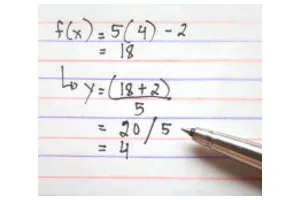 f(x) = 5(4) - 2
= 18
↳ y = (18+2)
5
= 20/5
= 4